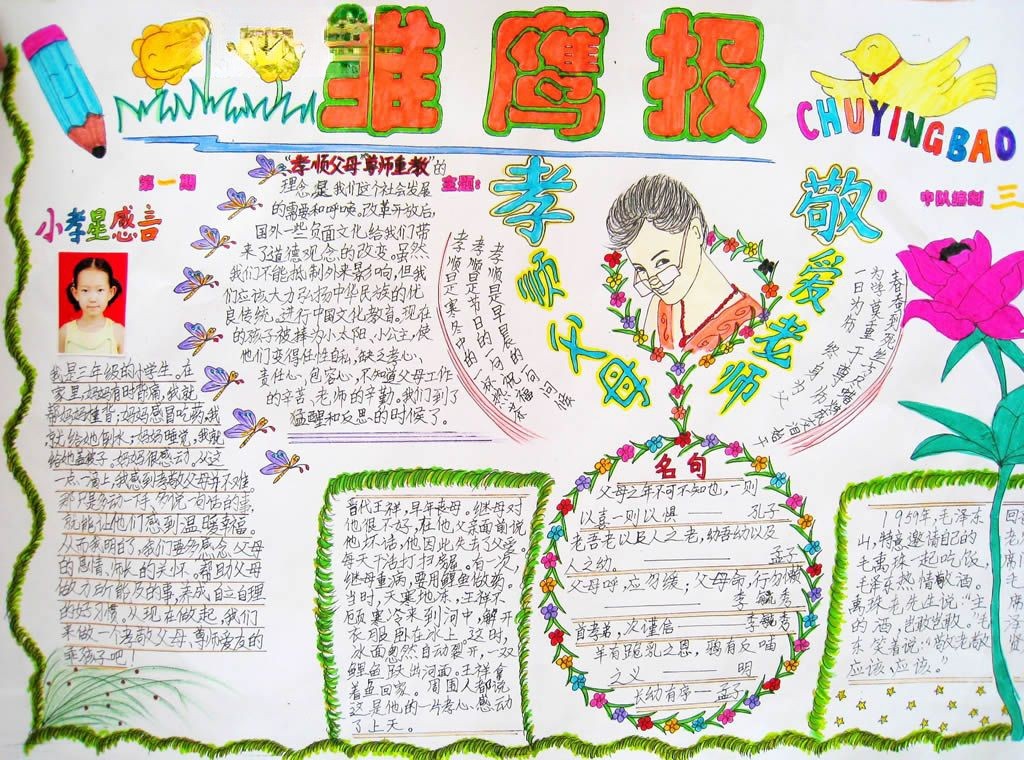 雏鹰报
CHUYINGBAO
第一期
主题：
孝顺父母
敬爱老师
中队编制 三
小孝星感言
我是三年级的小学生。在
家里,妈妈有时背痛,我就
帮妈妈捶背,妈妈感冒吃药,我
就给她倒水,妈妈睡觉,我就
给她盖被子。妈妈很感动。从这
一点一滴上,我感到孝敬父母并不难。
那只是多动一下手,多说一句话的事,
就能让他们感到温暖幸福。
从而我明白了,我们要多感念父母
的恩情、师长的关怀,帮助父母
做力所能及的事,养成自立自理
的好习惯。从现在做起,我们
来做一个孝敬父母、尊师爱友的
乖孩子吧!
“孝顺父母”“尊师重教”的
理念,是我们这个社会发展
的需要和呼唤。改革开放后,
国外一些负面文化给我们带
来了道德观念的改变。虽然
我们不能抵制外来影响,但我
们应该大力弘扬中华民族的优
良传统。进行中国文化教育。现在
的孩子被择为小太阳,小公主,使
他们变得任性自私,缺乏孝心,
责任心,包容心,不知道父母工作
的辛苦,老师的辛勤。我们到了
猛醒和反思的时候了。
孝顺是早晨的一句问候
孝顺是节日的一句祝福
孝顺是寒冬中的一杯热茶
春蚕到死丝方尽
为学莫重于尊师
一日为师 终身为父
晋代王祥,早年丧母。继母对
他很不好,在他父亲面前说
他坏话,他因此失去了父爱。
每天干活打扫房。有一次,
继母重病,要用鲤鱼做药。
当时,天寒地冻,王祥不
顾寒冷来到河中,解开
衣服卧在冰上。这时,
冰面忽然自动裂开,一双
鲤鱼跃出河面。王祥拿
着鱼回家。周围人都说
这是他的一片孝心,感动
了上天。
名句
父母之年不可不知也,一则
以喜一则以惧——孔子
老吾老以及人之老,幼吾幼以及
人之幼。——孟子
父母呼,应勿缓;父母命,行勿懒
——李毓秀
首孝弟,次谨信——李毓秀
羊有跪乳之恩,鸦有反哺
之义——明
长幼有序——孟子
1959年,毛泽东回
山,特意邀请自己的老
毛禹珠一起吃饭,席
毛泽东热情敬酒。毛
禹珠老先生说:“主席
的酒,岂敢岂敢。”毛泽
东笑着说:“敬老敬贤
应该,应该。”